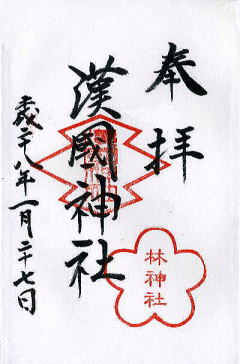 奉拝
漢國神社
林神社
歳二十八年一月二十七日